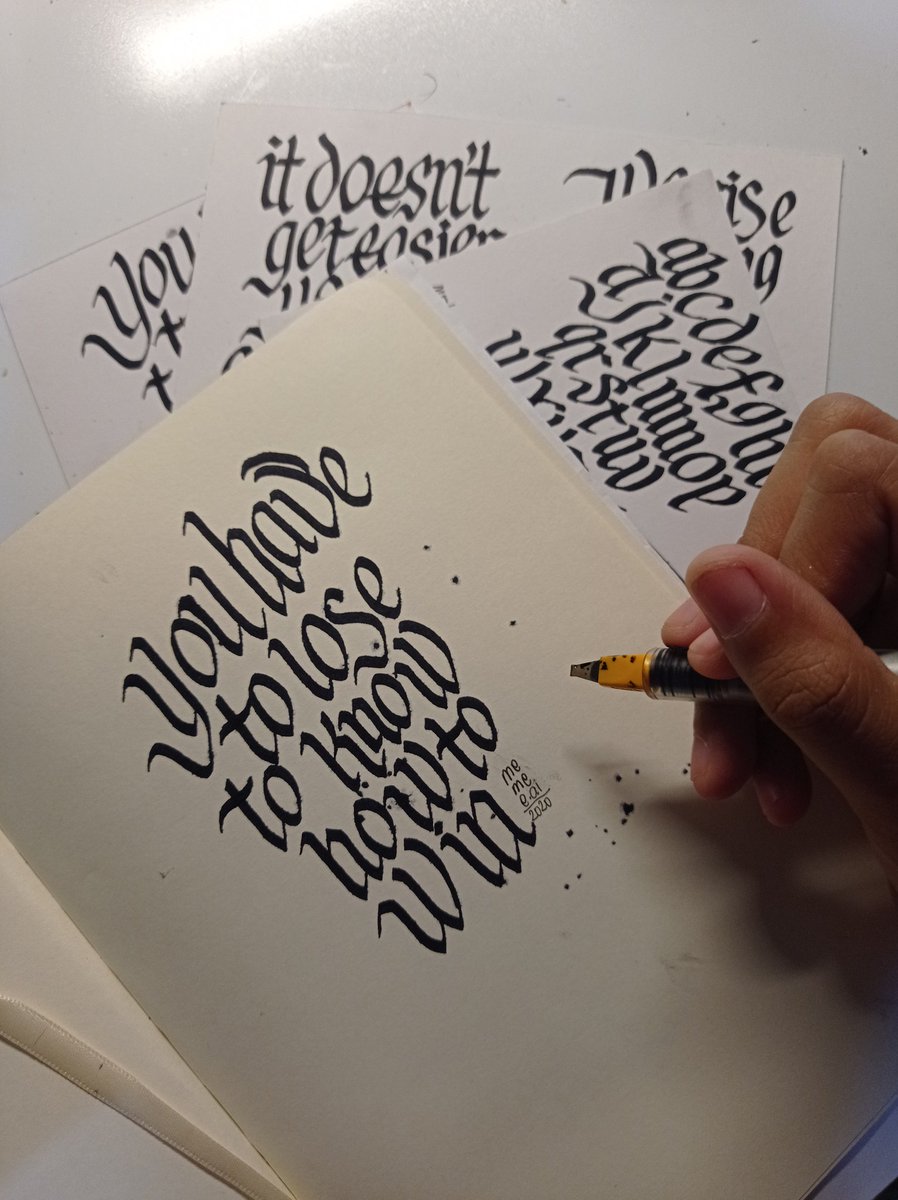 it doesn't
get easier
You
abcdefgh
ijklmnop
qrstuv
you have
to lose
to know
how to
win
me
me
e.ai
2020